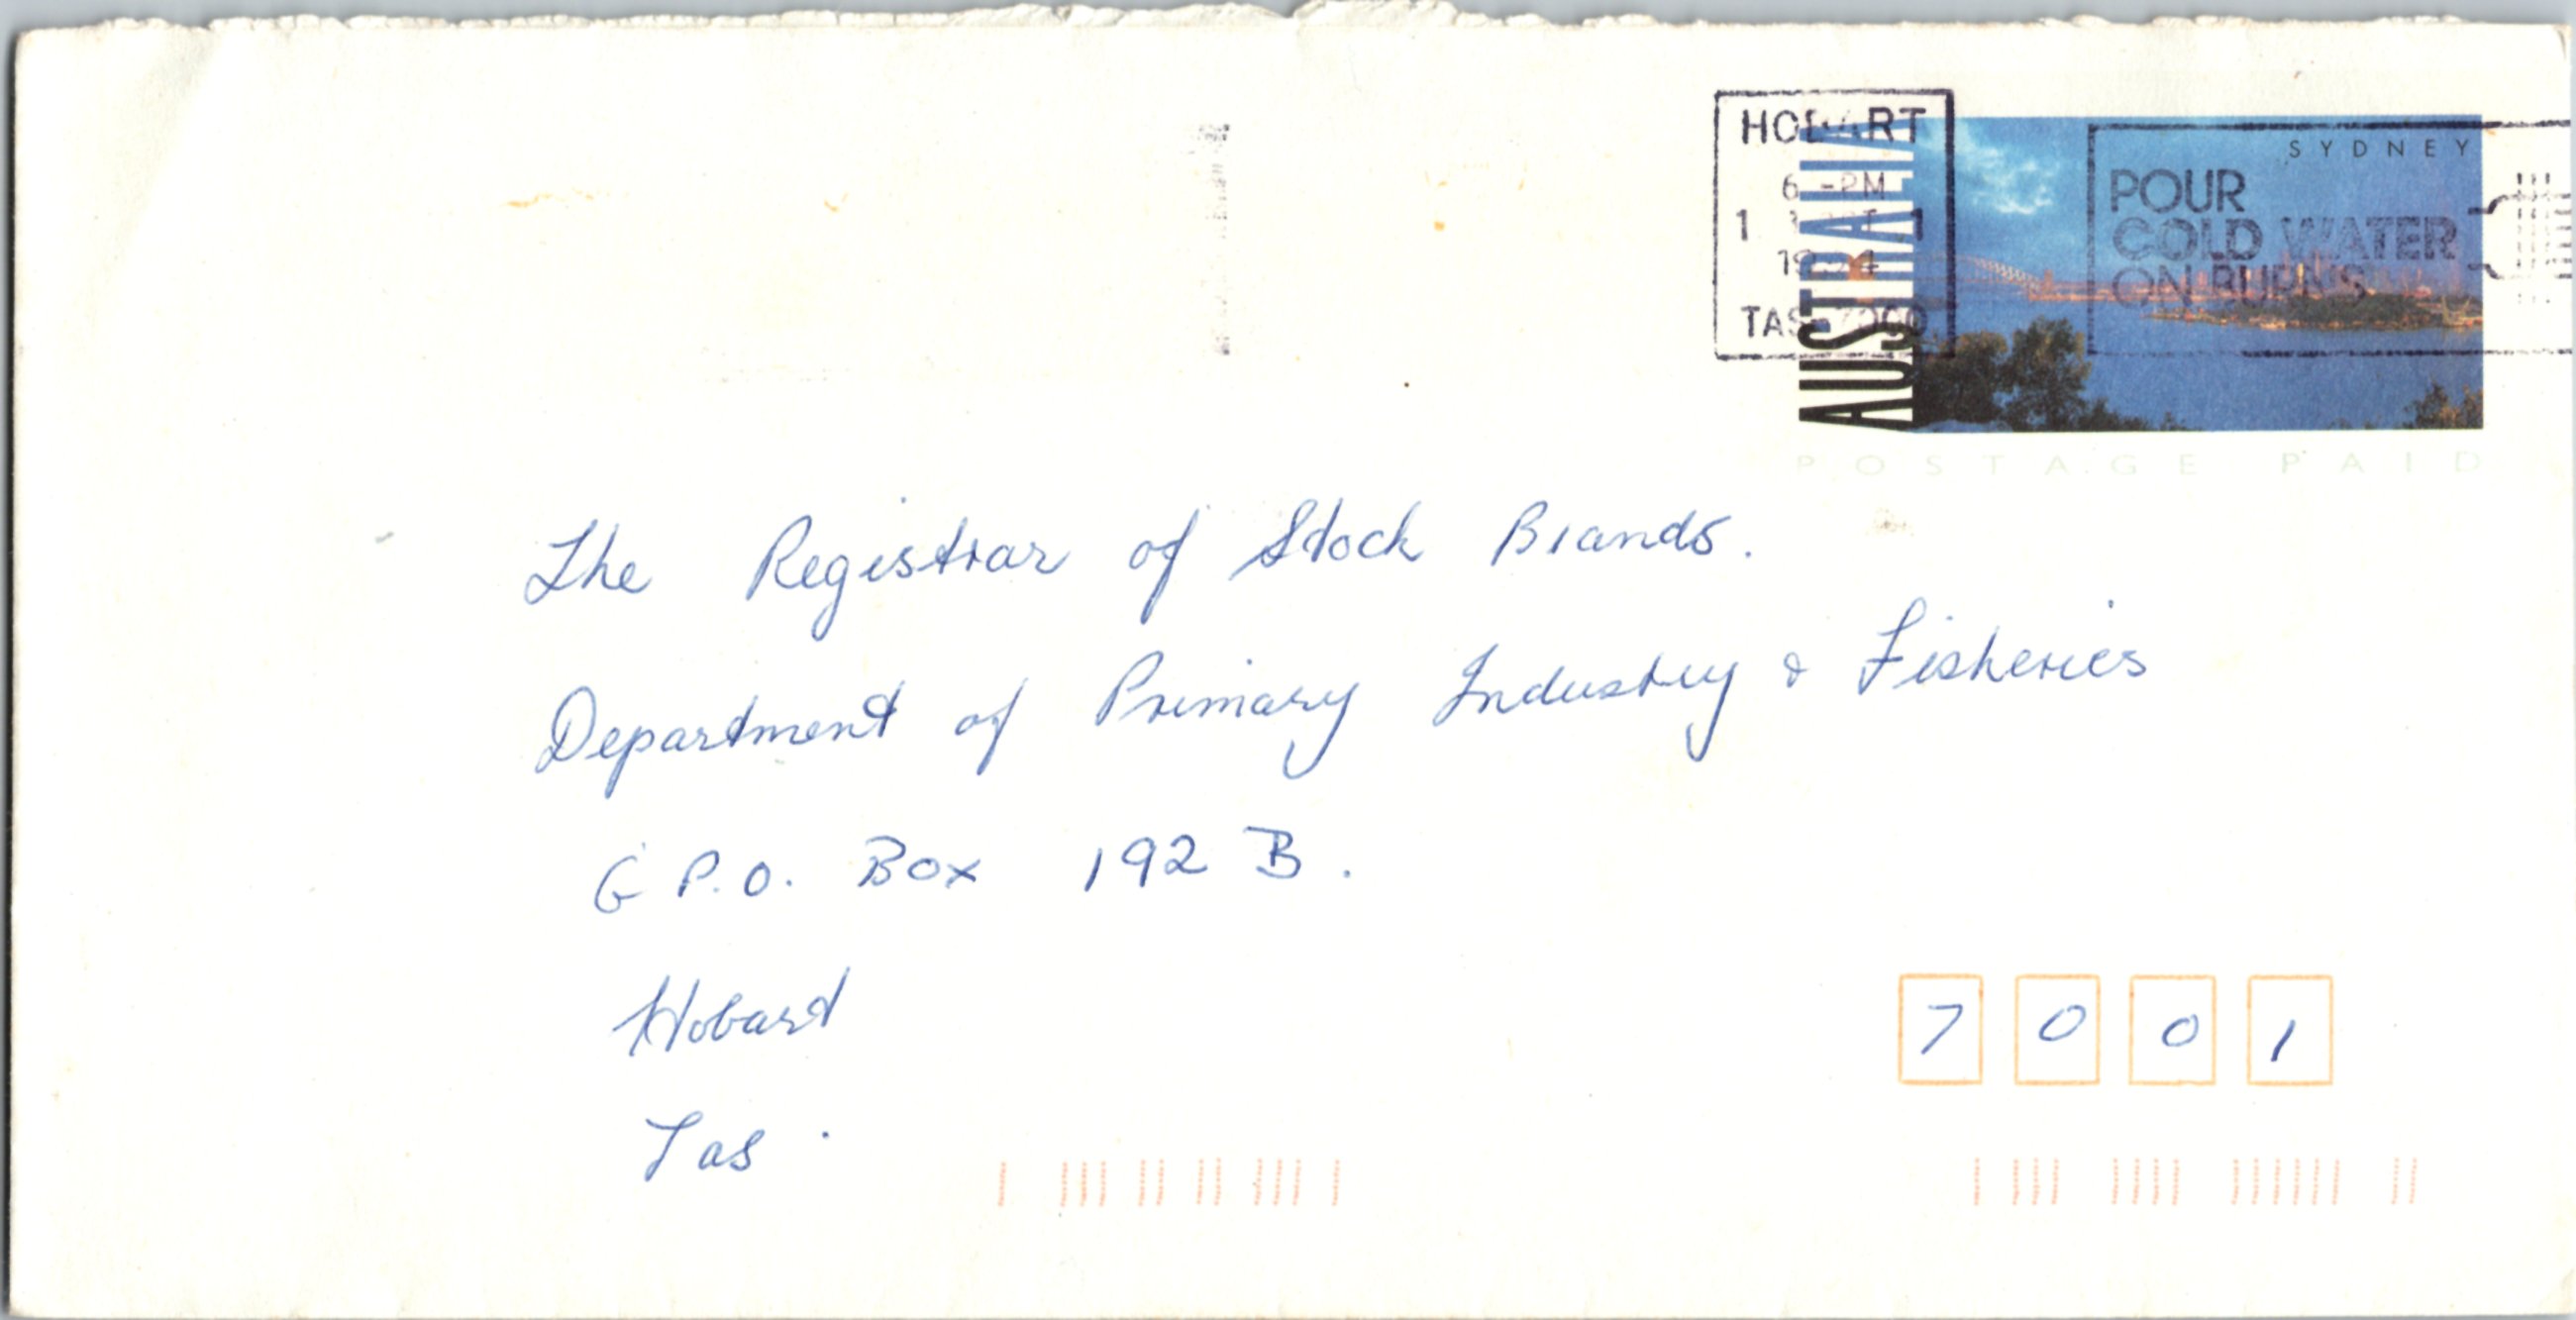 HOBART
6 -PM
TAS-7000
AUSTRALIA
SYDNEY
POUR
COLD WATER
ON BURNS
POSTAGE PAID
The Registrar of Stock Brands.
Department of Primary Industry & Fisheries
G P.O. Box 192 B.
Hobart
Tas.
7 0 0 1